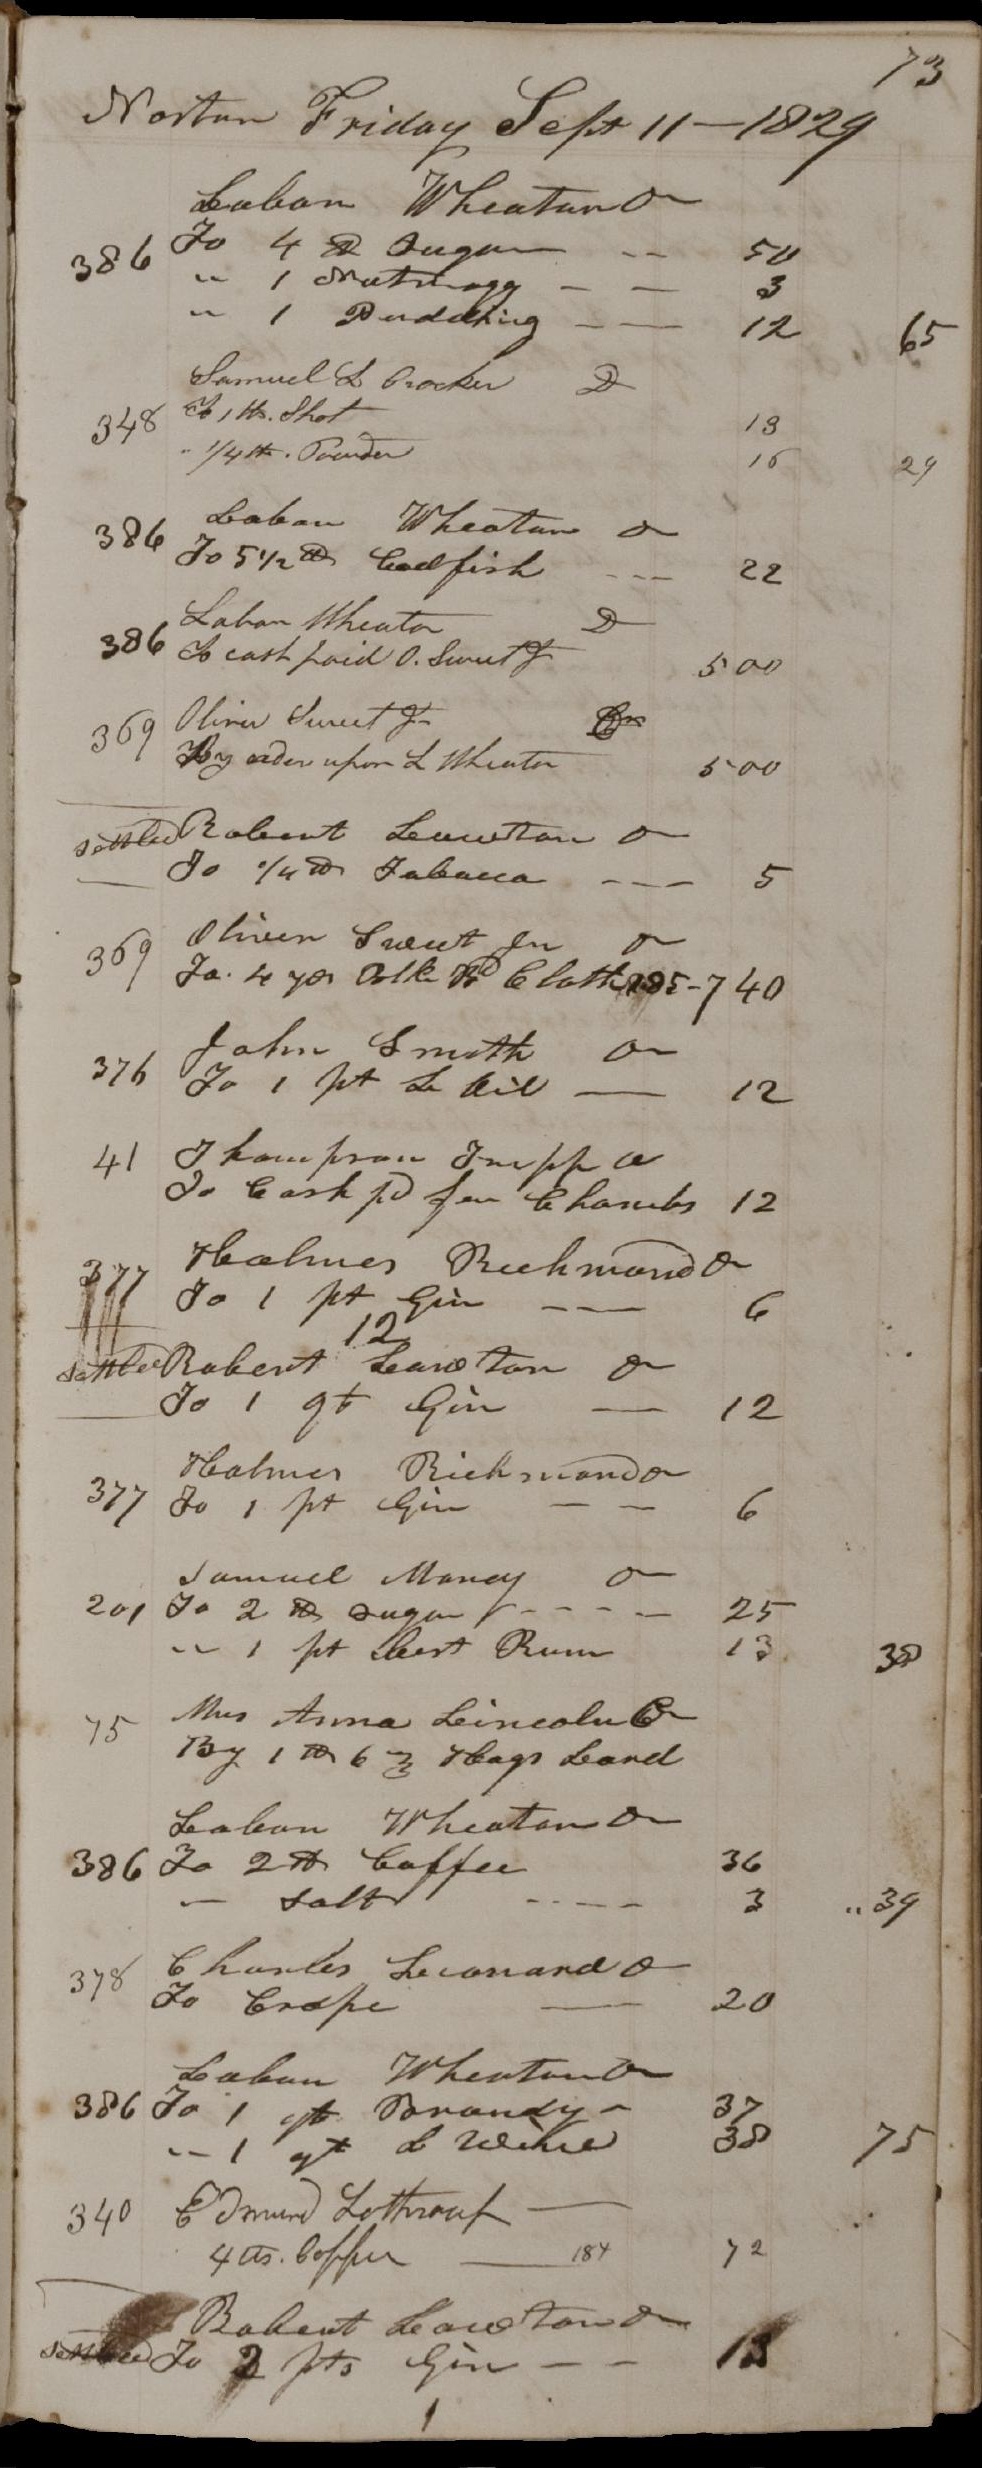 73
Norton Friday Sept 11 - 1829
Laban Wheaton Dr
386 To 4 lb Sugar -- 50
" 1 Nutmegg - - 3
" 1 Pudding - - 12 65
Samuel L Crocker D
348 To 1 lb. Shot 13
" 1/4 lb. Powder 16 29
386 Laban Wheaton Dr
To 5 1/2 lb Codfish --- 22
Laban Wheaton D
386 To cash paid O. Sweet Jr 5 00
369 Oliver Sweet Jr Cr
By order upon L Wheaton 5 00
settled Robert Lawton Dr
To 1/4 lb Tobacco --- 5
369 Oliver Sweet Jr Dr
To 4 yds Cloth 185 - 7 40
John Smith Dr
376 To 1 pt L Oil — 12
41 Thompson Tripp Dr
To Cash pd for Chambs 12
377 Holmes Richmond Dr
To 1 pt Gin --- 6
12
settled Robert Lawton Dr
To 1 qt Gin — 12
Holmes Richmond Dr
377 To 1 pt Gin - - 6
Samuel Maney Dr
201 To 2 lb Sugar ---- 25
" 1 pt best Rum 13 38
75 Mrs Anna Lincoln Cr
By 1 lb 6 oz Hogs Lard
Laban Wheaton Dr
386 To 2 lb Coffee 36
" Salt ---- 3 " 39
378 Charles Leonard Dr
To Crape — 20
Laban Wheaton Dr
386 To 1 qt Brandy - 37
" 1 qt L Wine 38 75
340 Edmund Lothrop —
4 lbs. Copper — 184 72
Robert Lawton Dr
settled To 2 pts Gin - -
1